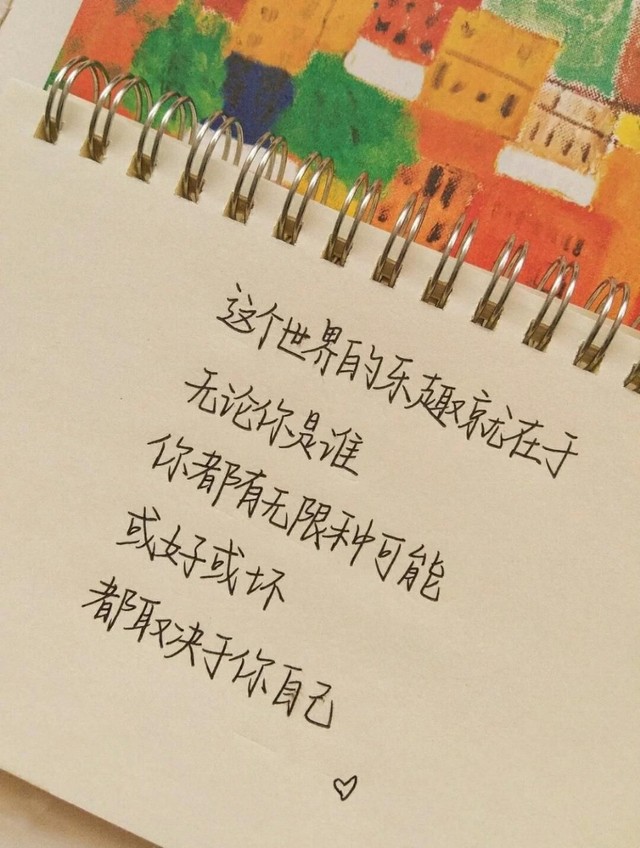 这个世界的乐趣就在于
无论你是谁
你都有无限种可能
或好或坏
都取决于你自己